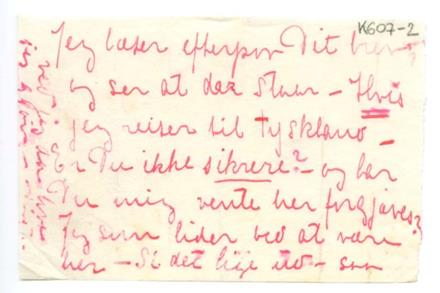 K607-2
Jeg læser efterpaa Dit brev,
og ser at der staar – Hvis
jeg reiser til Tyskland –
er Du ikke sikrere? – og lar
Du mig vente her forgjæves?
Jeg som lider ved at være
her – Si det lige ud – saa